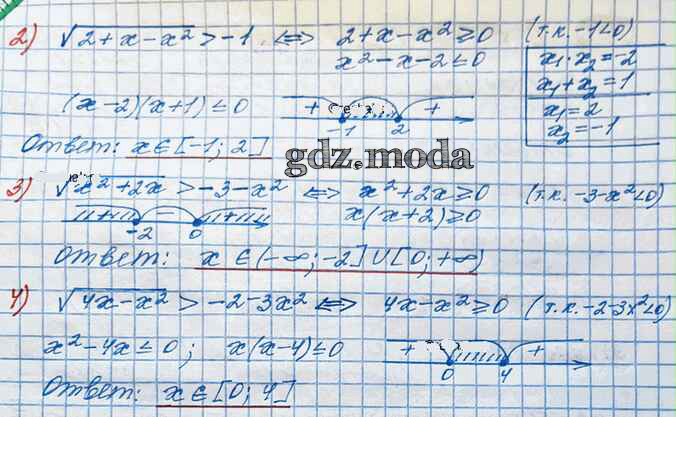 2) √2+x-x² > -1 ⇔ 2+x-x² ≥ 0 (т.к. -1<0)
x²-x-2 ≤ 0
x₁·x₂ = -2
x₁+x₂ = 1
x₁ = 2
x₂ = -1
(x-2)(x+1) ≤ 0
+ +
-1 2
Ответ: x ∈ [-1; 2]
gdz.moda
3) √x²+2x > -3-x² ⇔ x²+2x ≥ 0 (т.к. -3-x²<0)
x(x+2) ≥ 0
+ - +
-2 0
Ответ: x ∈ (-∞; -2] ∪ [0; +∞)
4) √4x-x² > -2-3x² ⇔ 4x-x² ≥ 0 (т.к. -2-3x²<0)
x²-4x ≤ 0; x(x-4) ≤ 0
+ +
0 4
Ответ: x ∈ [0; 4]